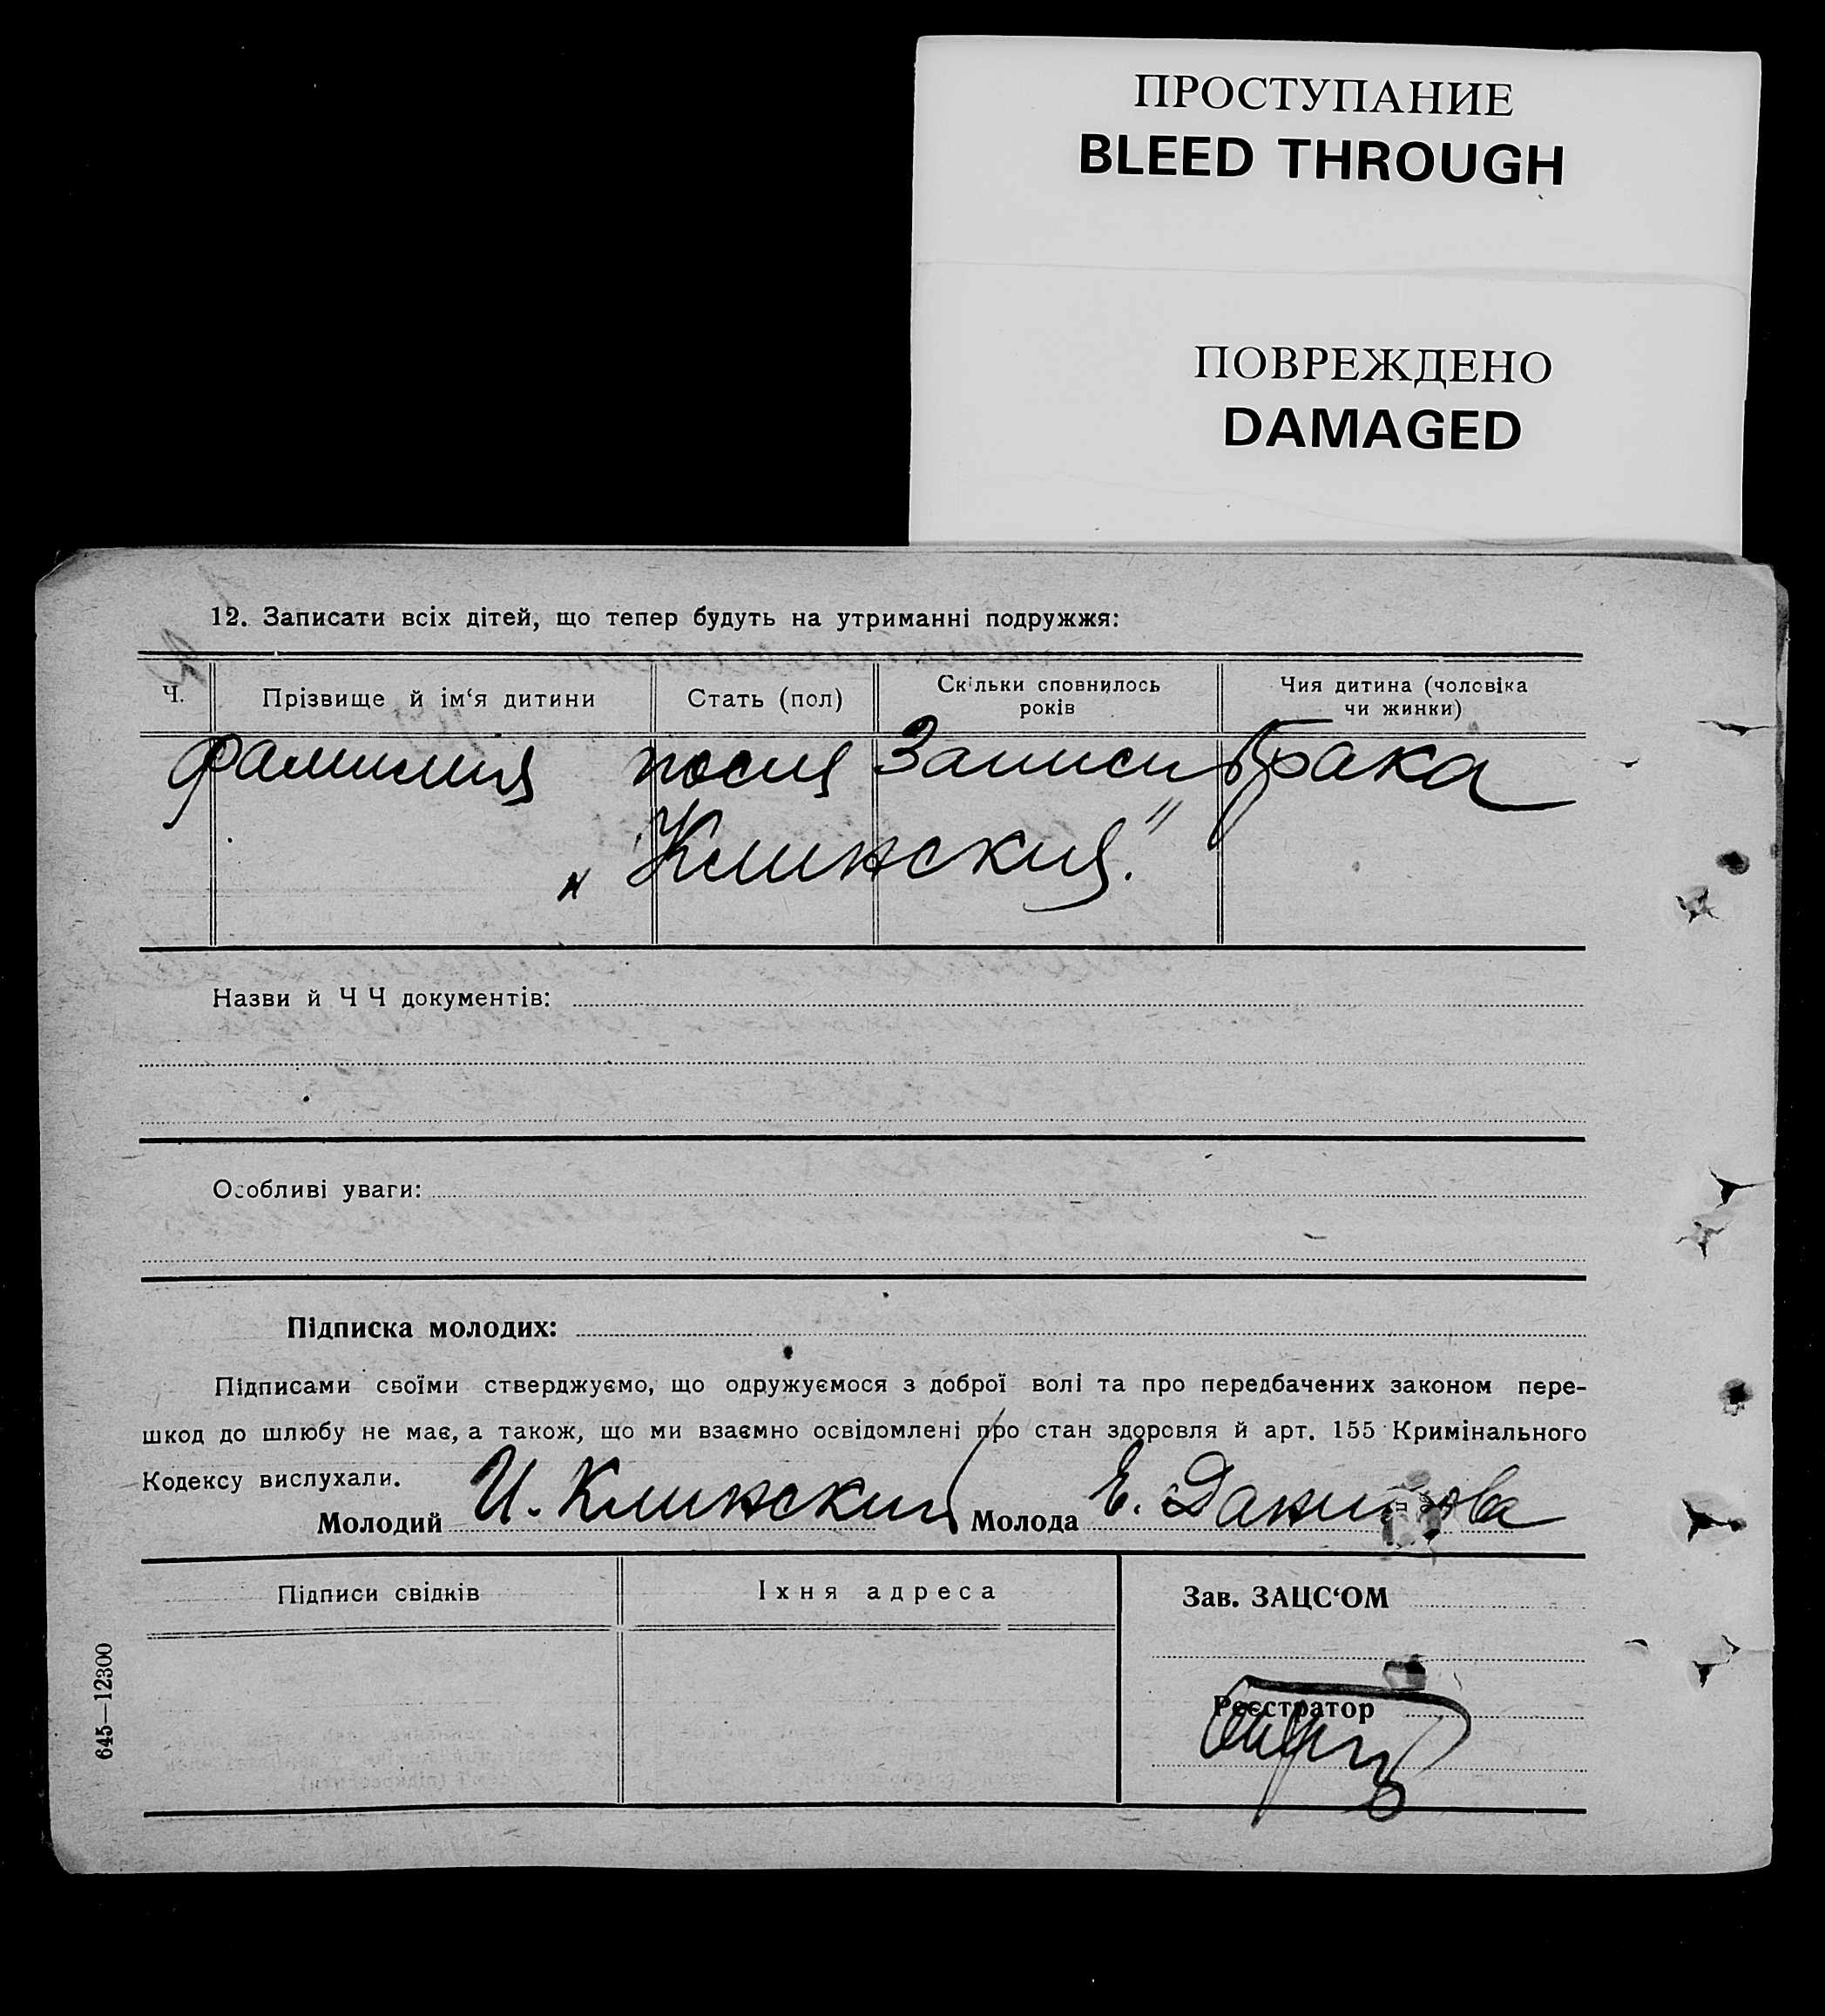 ПРОСТУПАНИЕ
BLEED THROUGH
ПОВРЕЖДЕНО
DAMAGED
12. Записати всіх дітей, що тепер будуть на утриманні подружжя:
Ч. Прізвище й ім‘я дитини Стать (пол) Скільки сповнилось років Чия дитина (чоловіка чи жинки)
фамилия после Записи брака
„Клинский."
Назви й Ч Ч документів:
Особливі уваги:
Підписка молодих:
Підписами своїми стверджуємо, що одружуємося з доброї волі та про передбачених законом пере-
шкод до шлюбу не має, а також, що ми взаємно освідомлені про стан здоровля й арт. 155 Кримінального
Кодексу вислухали.
Молодий И. Клинский Молода Е. Данилова
Підписи свідків Їхня адреса Зав. ЗАЦС‘ОМ
Реєстратор
645—12300